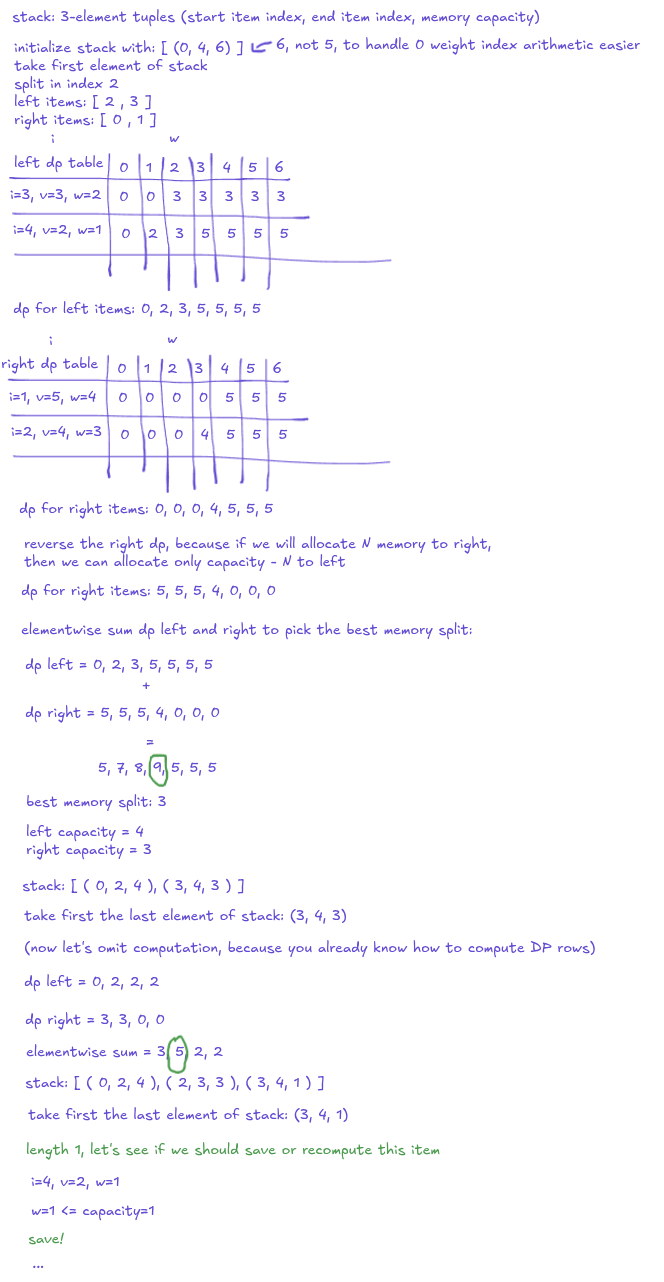 stack: 3-element tuples (start item index, end item index, memory capacity)
initialize stack with: [ (0, 4, 6) ] 6, not 5, to handle 0 weight index arithmetic easier
take first element of stack
split in index 2
left items: [ 2 , 3 ]
right items: [ 0 , 1 ]
i w
left dp table 0 1 2 3 4 5 6
i=3, v=3, w=2 0 0 3 3 3 3 3
i=4, v=2, w=1 0 2 3 5 5 5 5
dp for left items: 0, 2, 3, 5, 5, 5, 5
i w
right dp table 0 1 2 3 4 5 6
i=1, v=5, w=4 0 0 0 0 5 5 5
i=2, v=4, w=3 0 0 0 4 5 5 5
dp for right items: 0, 0, 0, 4, 5, 5, 5
reverse the right dp, because if we will allocate N memory to right,
then we can allocate only capacity - N to left
dp for right items: 5, 5, 5, 4, 0, 0, 0
elementwise sum dp left and right to pick the best memory split:
dp left = 0, 2, 3, 5, 5, 5, 5
+
dp right = 5, 5, 5, 4, 0, 0, 0
=
5, 7, 8, 9, 5, 5, 5
best memory split: 3
left capacity = 4
right capacity = 3
stack: [ ( 0, 2, 4 ), ( 3, 4, 3 ) ]
take first the last element of stack: (3, 4, 3)
(now let's omit computation, because you already know how to compute DP rows)
dp left = 0, 2, 2, 2
dp right = 3, 3, 0, 0
elementwise sum = 3, 5, 2, 2
stack: [ ( 0, 2, 4 ), ( 2, 3, 3 ), ( 3, 4, 1 ) ]
take first the last element of stack: (3, 4, 1)
length 1, let's see if we should save or recompute this item
i=4, v=2, w=1
w=1 <= capacity=1
save!
...